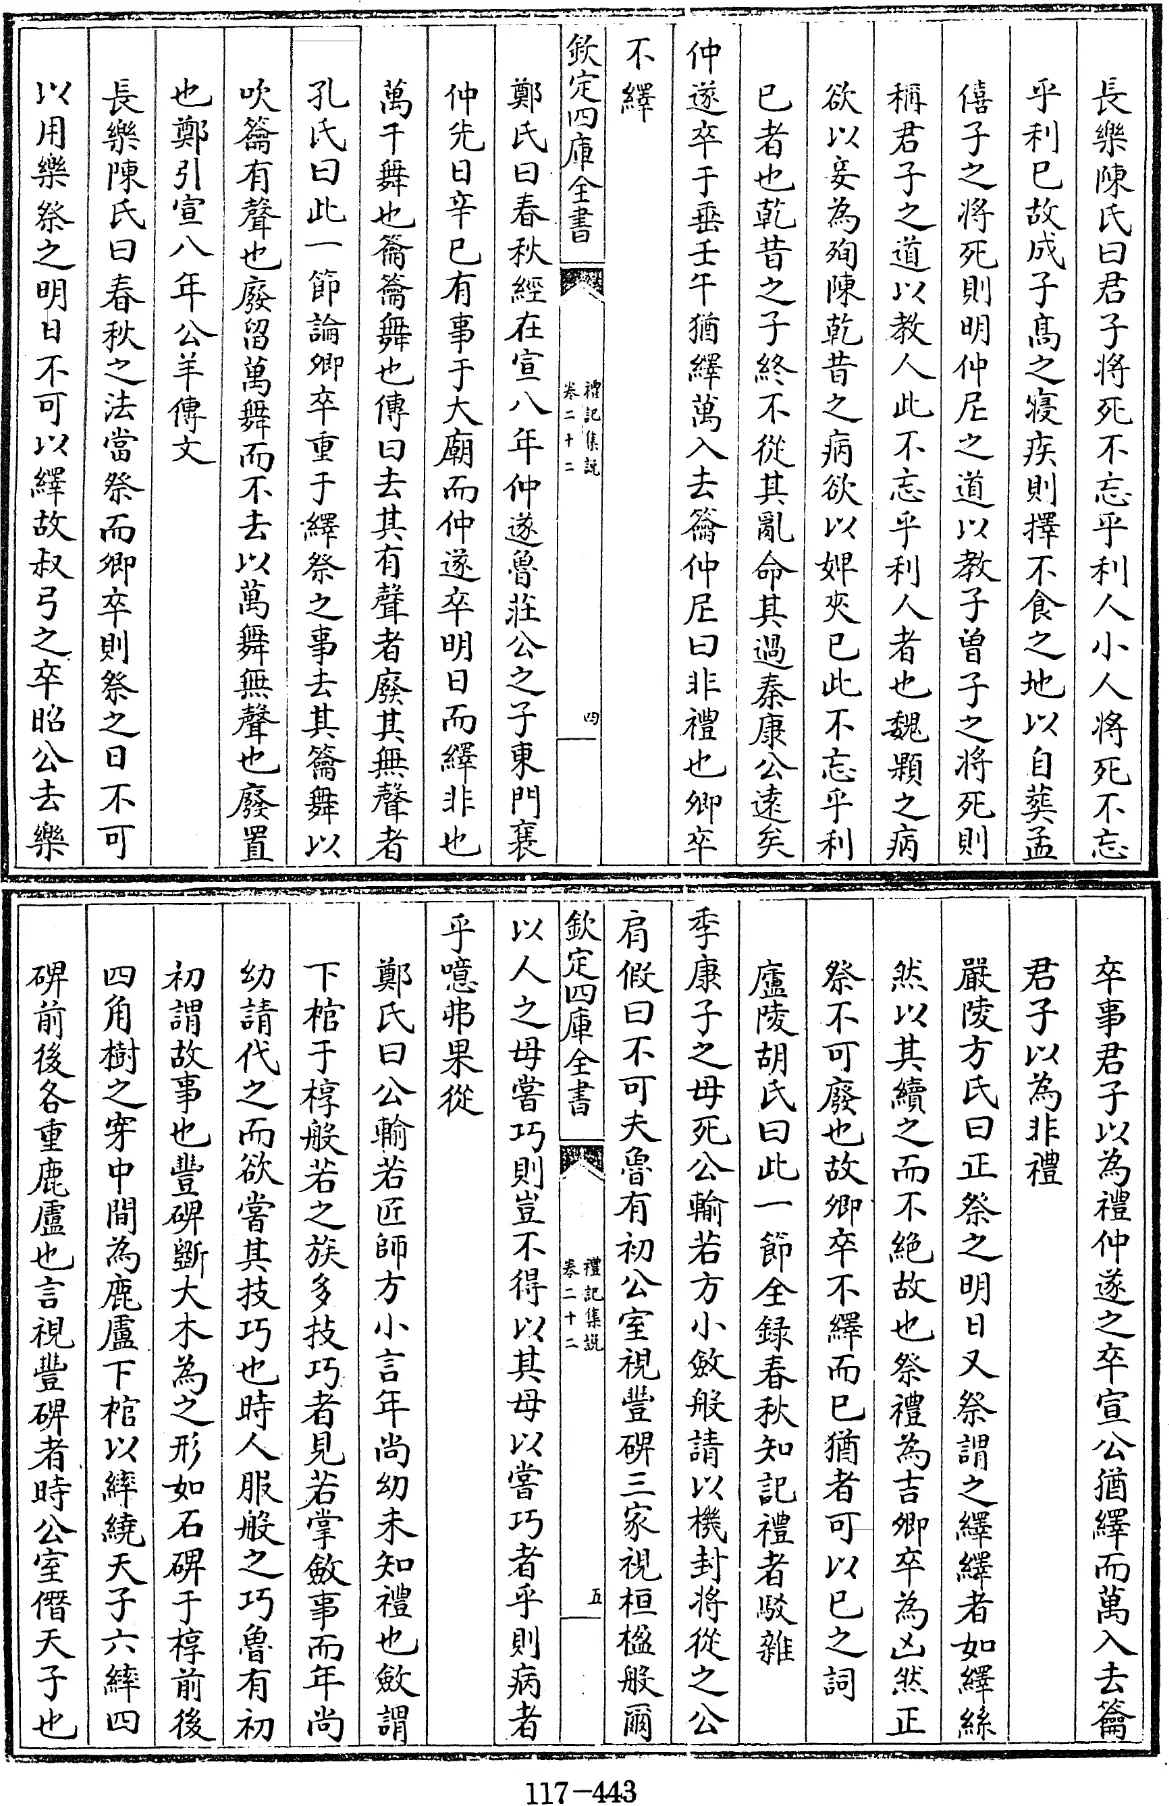 長樂陳氏曰君子将死不忘乎利人小人将死不忘
乎利已故成子髙之寢疾則擇不食之地以自葬孟
僖子之将死則明仲尼之道以教子曽子之将死則
稱君子之道以教人此不忘乎利人者也魏顆之病
欲以妾為殉陳乾昔之病欲以婢夾已此不忘乎利
已者也乾昔之子終不從其亂命其過秦康公逺矣
仲遂卒于垂壬午猶繹萬入去籥仲尼曰非禮也卿卒
不繹
欽定四庫全書
禮記集説
卷二十二
四
鄭氏曰春秋經在宣八年仲遂魯莊公之子東門襄
仲先日辛巳有事于大廟而仲遂卒明日而繹非也
萬干舞也籥籥舞也傳曰去其有聲者廢其無聲者
孔氏曰此一節論卿卒重于繹祭之事去其籥舞以
吹籥有聲也廢留萬舞而不去以萬舞無聲也廢置
也鄭引宣八年公羊傳文
長樂陳氏曰春秋之法當祭而卿卒則祭之日不可
以用樂祭之明日不可以繹故叔弓之卒昭公去樂
卒事君子以為禮仲遂之卒宣公猶繹而萬入去籥
君子以為非禮
嚴陵方氏曰正祭之明日又祭謂之繹繹者如繹絲
然以其續之而不絶故也祭禮為吉卿卒為凶然正
祭不可廢也故卿卒不繹而已猶者可以已之詞
廬陵胡氏曰此一節全録春秋知記禮者駁雜
季康子之母死公輸若方小斂般請以機封将從之公
肩假曰不可夫魯有初公室視豐碑三家視桓楹般爾
欽定四庫全書
禮記集説
卷二十二
五
以人之母嘗巧則豈不得以其母以嘗巧者乎則病者
乎噫弗果從
鄭氏曰公輸若匠師方小言年尚幼未知禮也斂謂
下棺于椁般若之族多技巧者見若掌斂事而年尚
幼請代之而欲嘗其技巧也時人服般之巧魯有初
初謂故事也豐碑斵大木為之形如石碑于椁前後
四角樹之穿中間為鹿盧下棺以繂繞天子六繂四
碑前後各重鹿盧也言視豐碑者時公室僭天子也
117-443